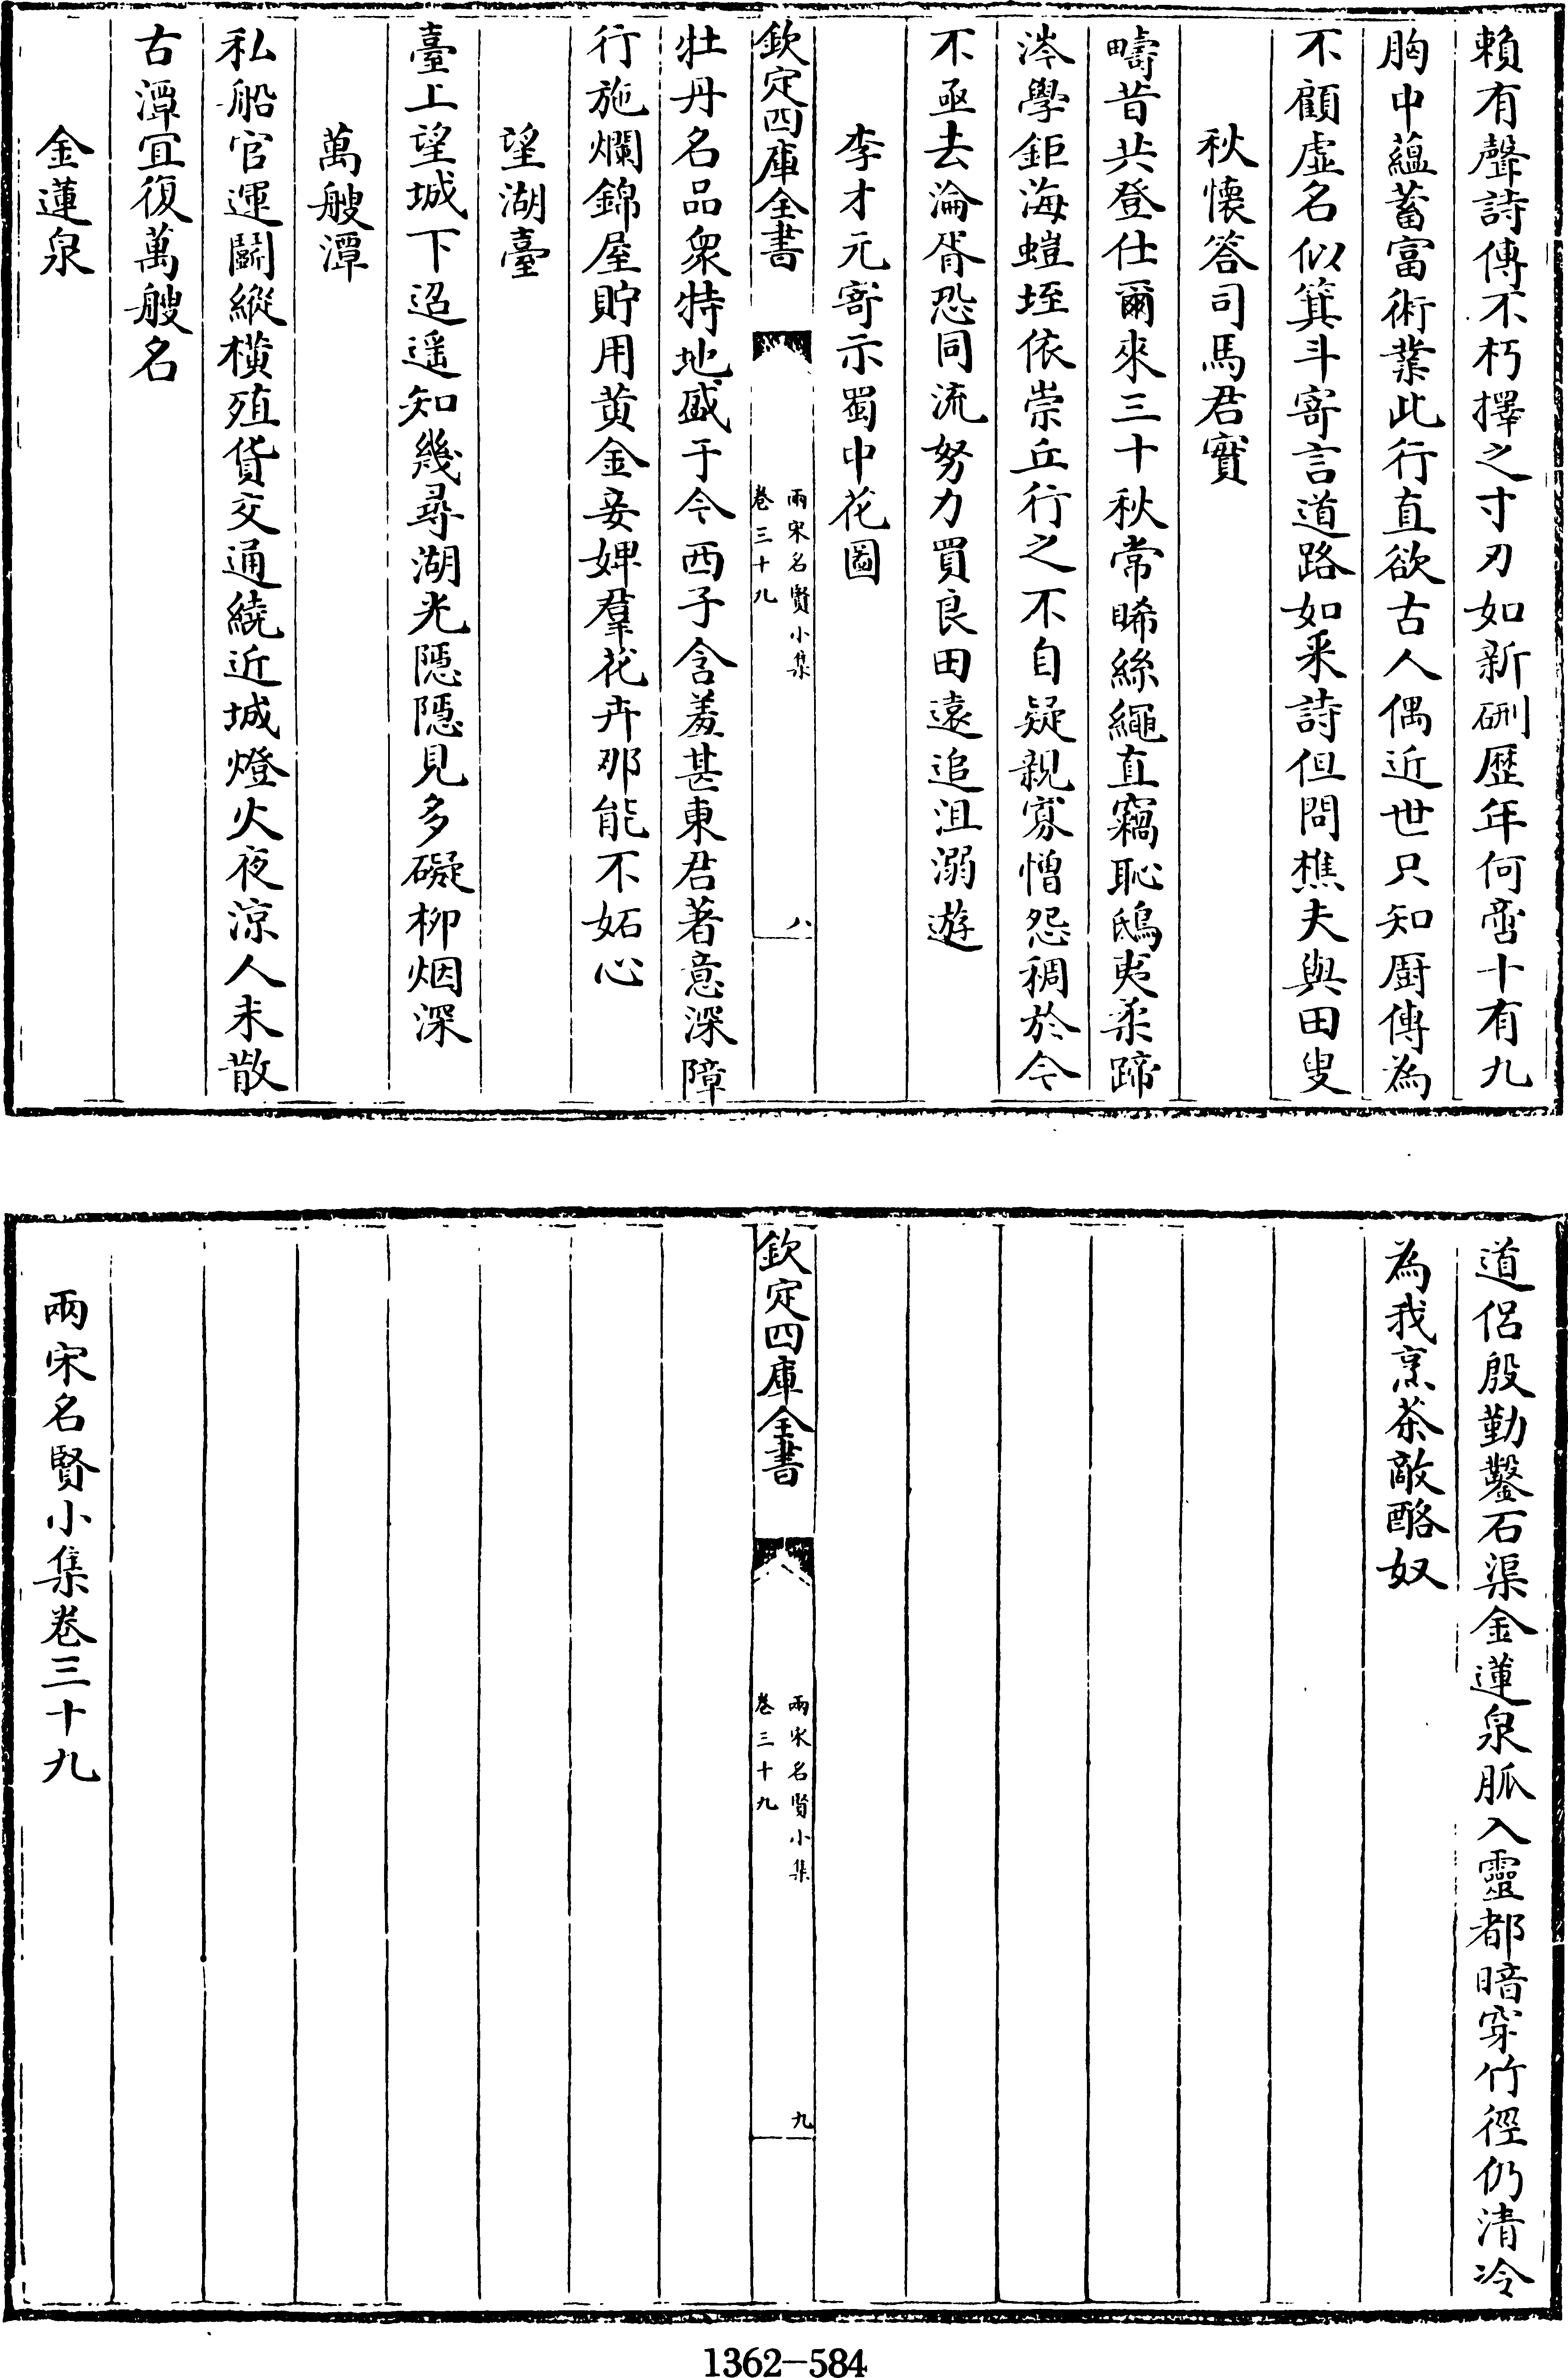 賴有聲詩傳不朽擇之寸刃如新硎歷年何啻十有九
胸中蘊蓄富術業此行直欲古人偶近世只知厨傳為
不顧虛名似箕斗寄言道路如采詩但問樵夫與田叟
秋懷答司馬君實
疇昔共登仕爾來三十秋常晞絲繩直竊恥鴟夷柔蹄
涔學鉅海螘垤依崇丘行之不自疑親寡憎怨稠於今
不亟去淪胥恐同流努力買良田遠追沮溺遊
李才元寄示蜀中花圖
欽定四庫全書
兩宋名賢小集
卷三十九
八
牡丹名品衆特地盛于今西子含羞甚東君著意深障
行施爛錦屋貯用黃金妾婢羣花卉那能不妬心
望湖臺
臺上望城下迢遥知幾尋湖光隱隱見多礙柳烟深
萬艘潭
私船官運鬭縱橫殖貨交通繞近城燈火夜涼人未散
古潭宜復萬艘名
金蓮泉
道侶殷勤鑿石渠金蓮泉脈入靈都暗穿竹徑仍清冷
為我烹茶敵酪奴
欽定四庫全書
兩宋名賢小集
卷三十九
九
兩宋名賢小集卷三十九
1362-584